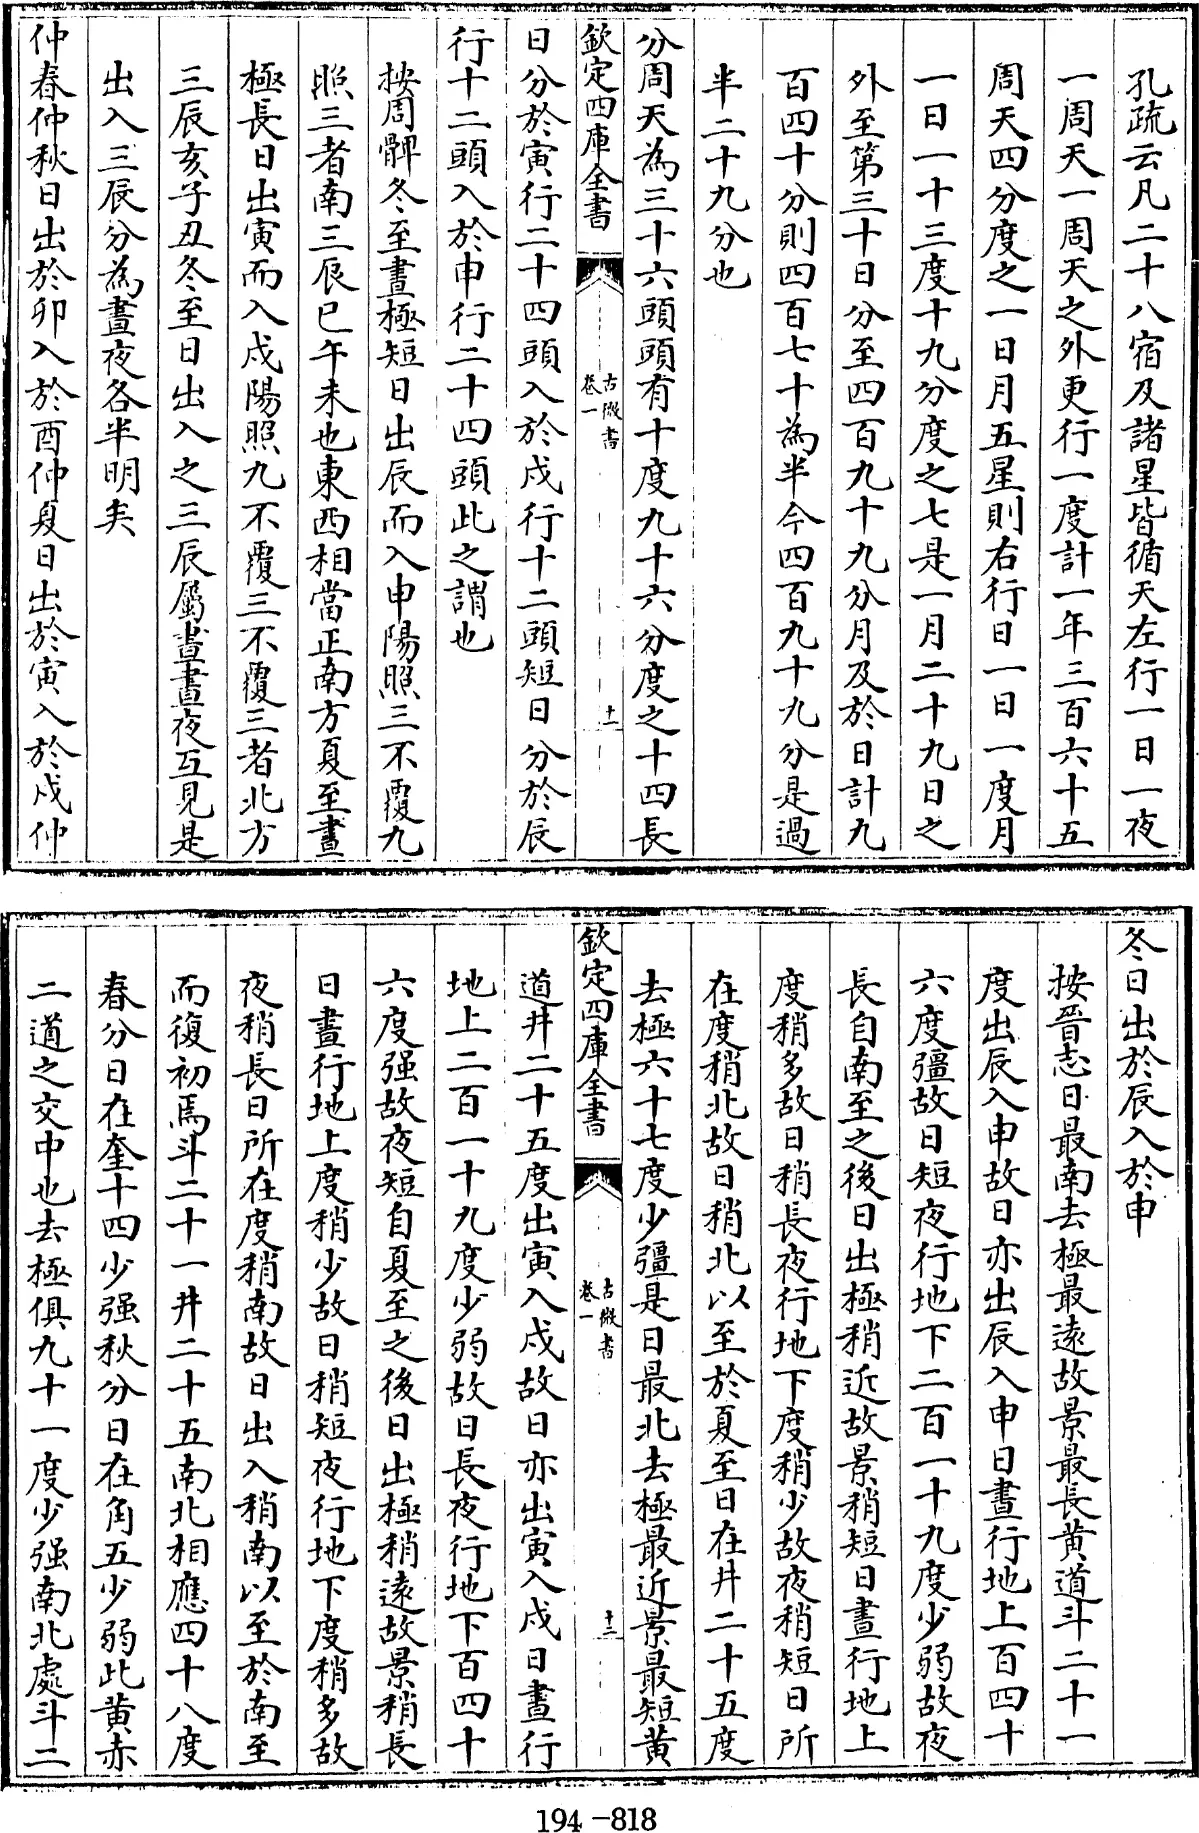 孔疏云凡二十八宿及諸星皆循天左行一日一夜
一周天一周天之外更行一度計一年三百六十五
周天四分度之一日月五星則右行日一日一度月
一日一十三度十九分度之七是一月二十九日之
外至第三十日分至四百九十九分月及於日計九
百四十分則四百七十為半今四百九十九分是過
半二十九分也
分周天為三十六頭頭有十度九十六分度之十四長
欽定四庫全書
古微書
卷一
十一
日分於寅行二十四頭入於戍行十二頭短日分於辰
行十二頭入於申行二十四頭此之謂也
按周髀冬至晝極短日出辰而入申陽照三不覆九
照三者南三辰巳午未也東西相當正南方夏至晝
極長日出寅而入戍陽照九不覆三不覆三者北方
三辰亥子丑冬至日出入之三辰屬晝晝夜互見是
出入三辰分為晝夜各半明矣
仲春仲秋日出於卯入於酉仲夏日出於寅入於戍仲
冬日出於辰入於申
按晉志日最南去極最遠故景最長黄道斗二十一
度出辰入申故日亦出辰入申日晝行地上百四十
六度彊故日短夜行地下二百一十九度少弱故夜
長自南至之後日出極稍近故景稍短日晝行地上
度稍多故日稍長夜行地下度稍少故夜稍短日所
在度稍北故日稍北以至於夏至日在井二十五度
去極六十七度少彊是日最北去極最近景最短黄
欽定四庫全書
古微書
卷一
十二
道井二十五度出寅入戍故日亦出寅入戍日晝行
地上二百一十九度少弱故日長夜行地下百四十
六度强故夜短自夏至之後日出極稍遠故景稍長
日晝行地上度稍少故日稍短夜行地下度稍多故
夜稍長日所在度稍南故日出入稍南以至於南至
而復初焉斗二十一井二十五南北相應四十八度
春分日在奎十四少强秋分日在角五少弱此黄赤
二道之交中也去極俱九十一度少强南北處斗二
194-818